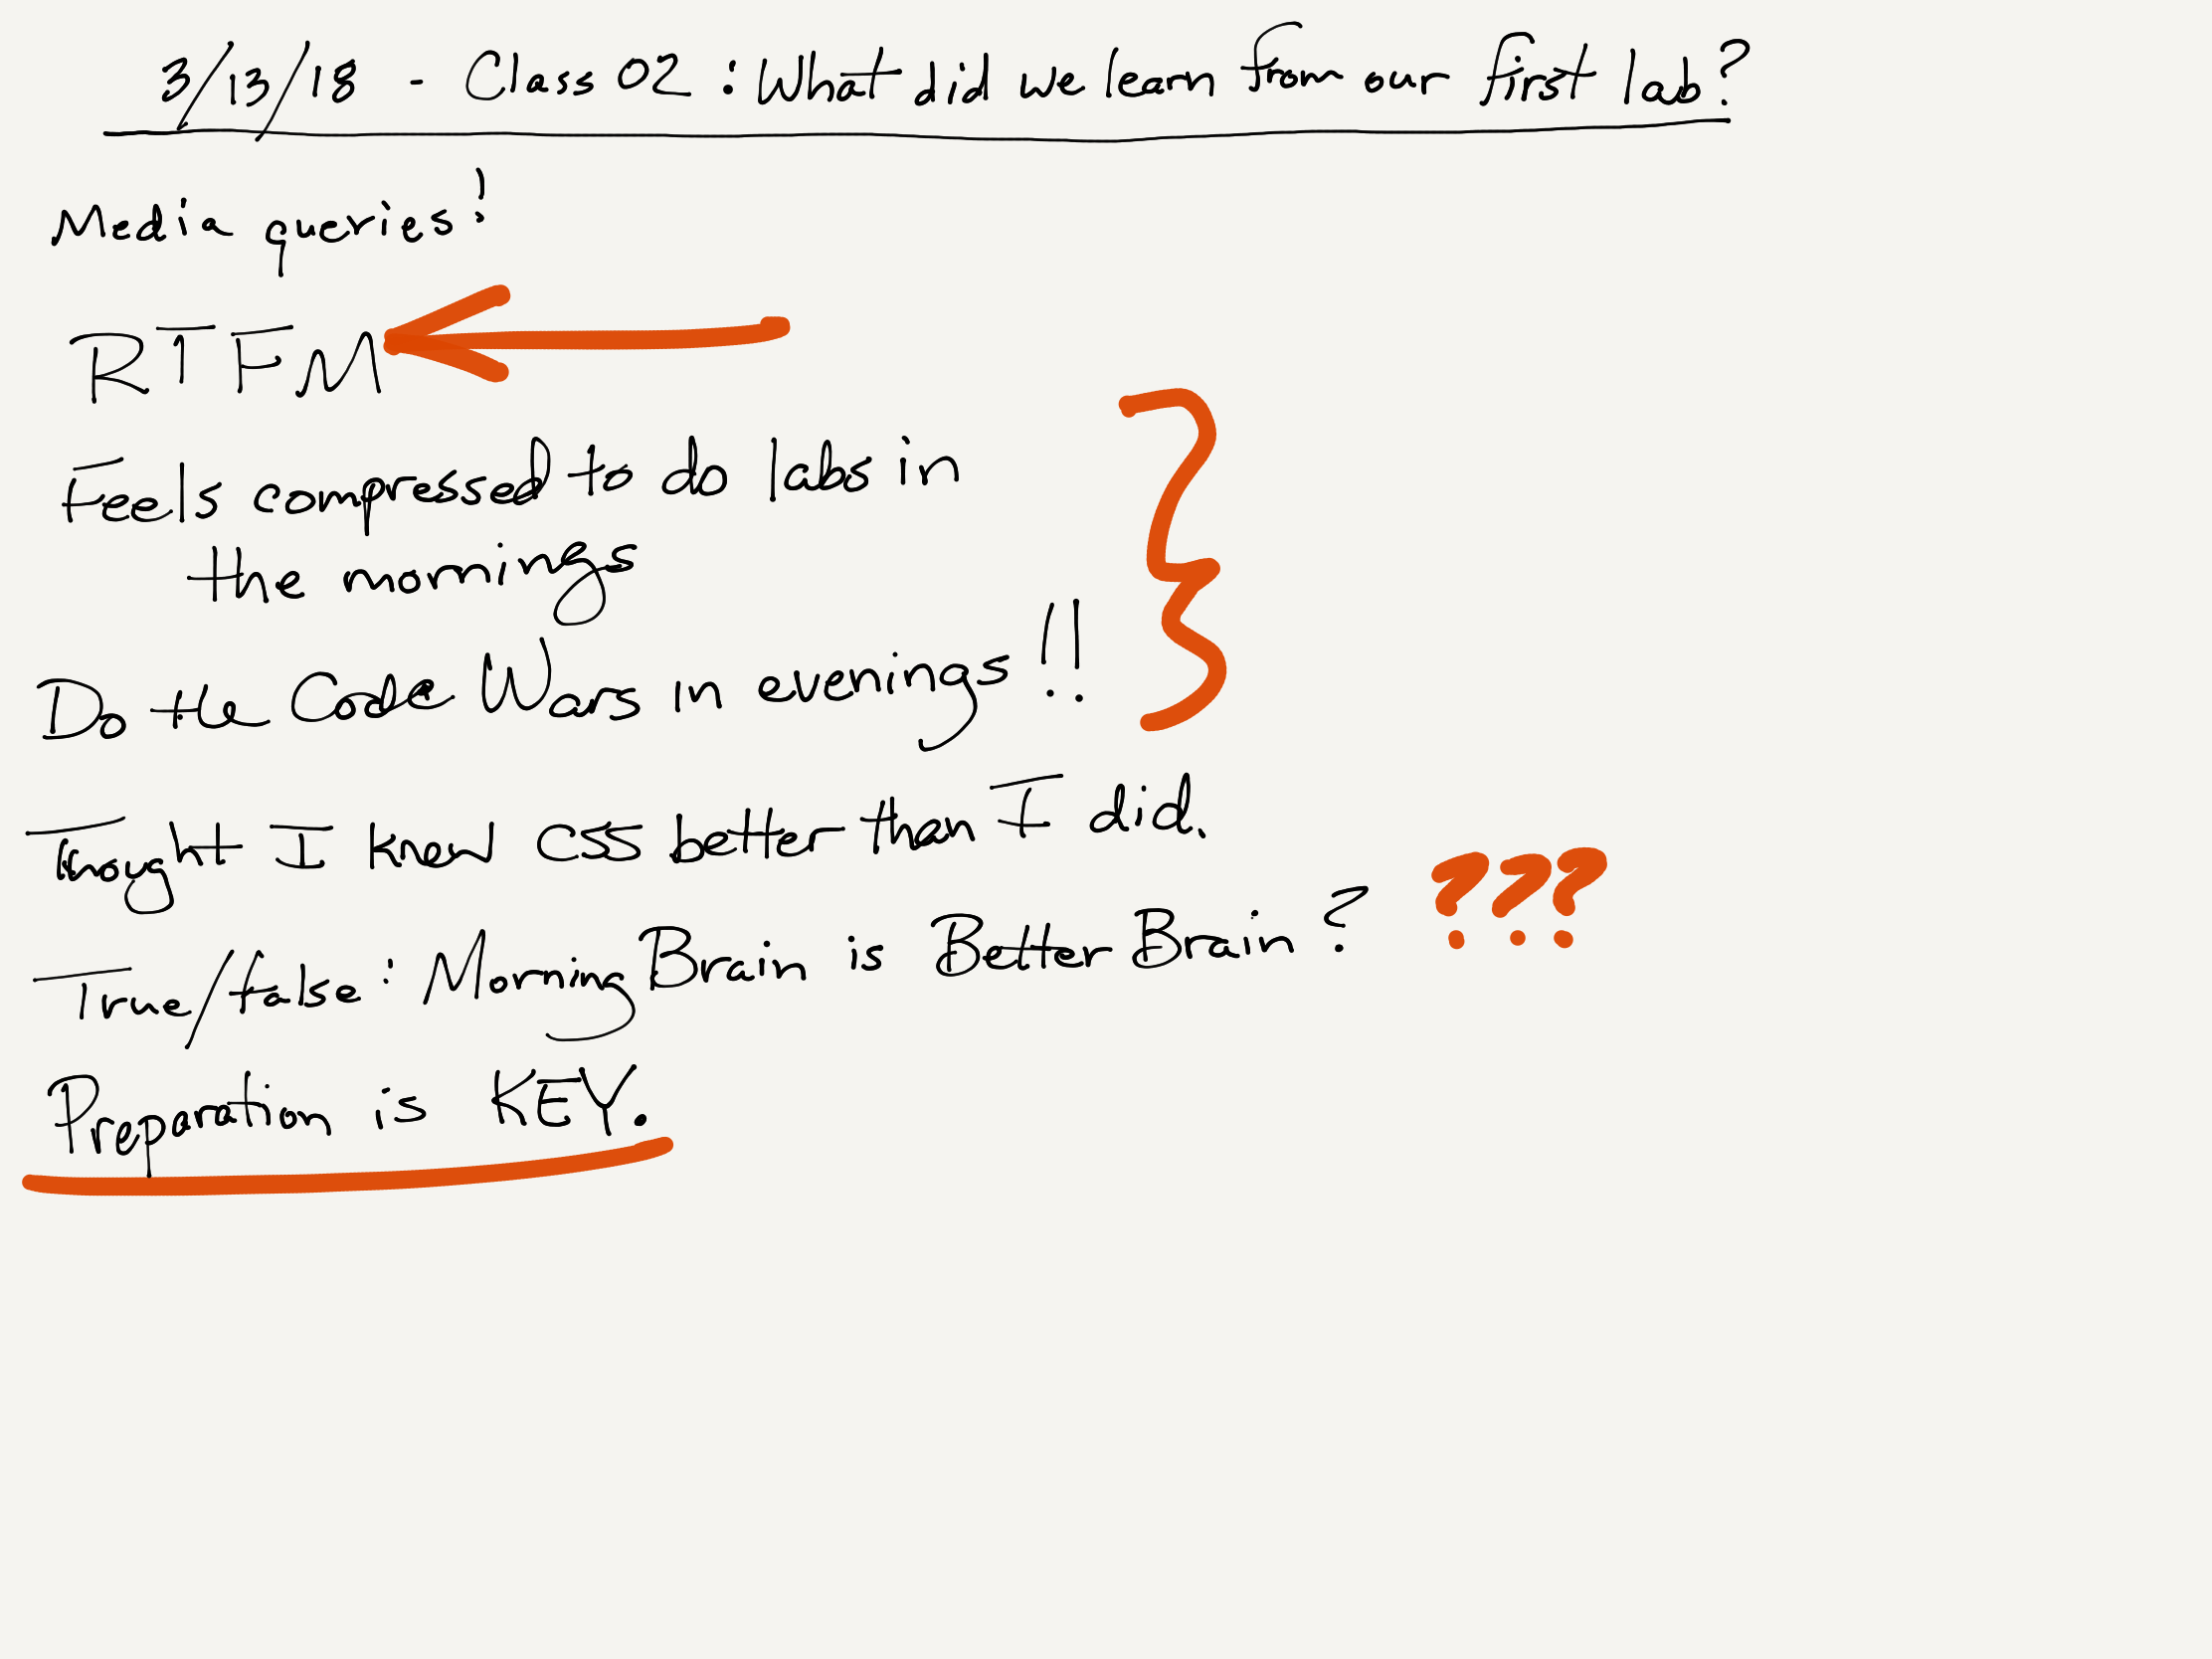 3/13/18 - Class 02 : What did we learn from our first lab?
Media queries!
RTFM
Feels compressed to do labs in
the mornings
Do the Code Wars in evenings!!
Thought I knew CSS better than I did.
True/false: Morning Brain is Better Brain? ???
Preparation is KEY.